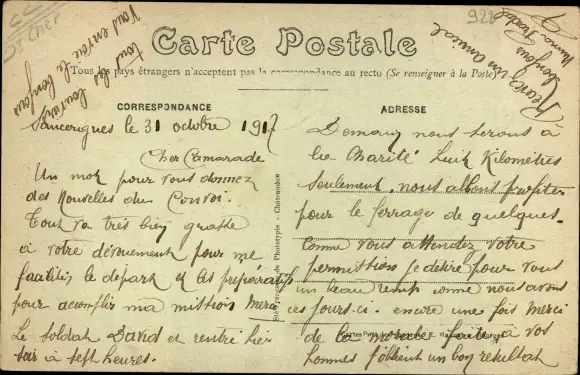 St Cher
928
Carte Postale
Tous les pays étrangers n'acceptent pas la correspondance au recto (Se renseigner à la Poste)
CORRESPONDANCE
Sancergues le 31 octobre 1917
Cher Camarade
Un mot pour vous donnez
des Nouvelles du Convoi.
Tout va très bien grasse
à votre dévouement pour me
facilités le départ et les préparatifs
pour acomplir ma mission Merci
Le soldat David et rentré hier
soir à sept heures.
ADRESSE
Demain nous serons à
la Charité huit Kilomètres
seulement, nous allons profiter
pour le ferrage de quelques.
Comme vous attendez votre
permission je désire pour vous
un beau temp comme nous avons
ces jours.ci. encore une fois merci
de la morale faite à vos
hommes j'obtient un bon resultat
Recevez mon amical
bonjour
Tout les
Vous envoie le bonjour